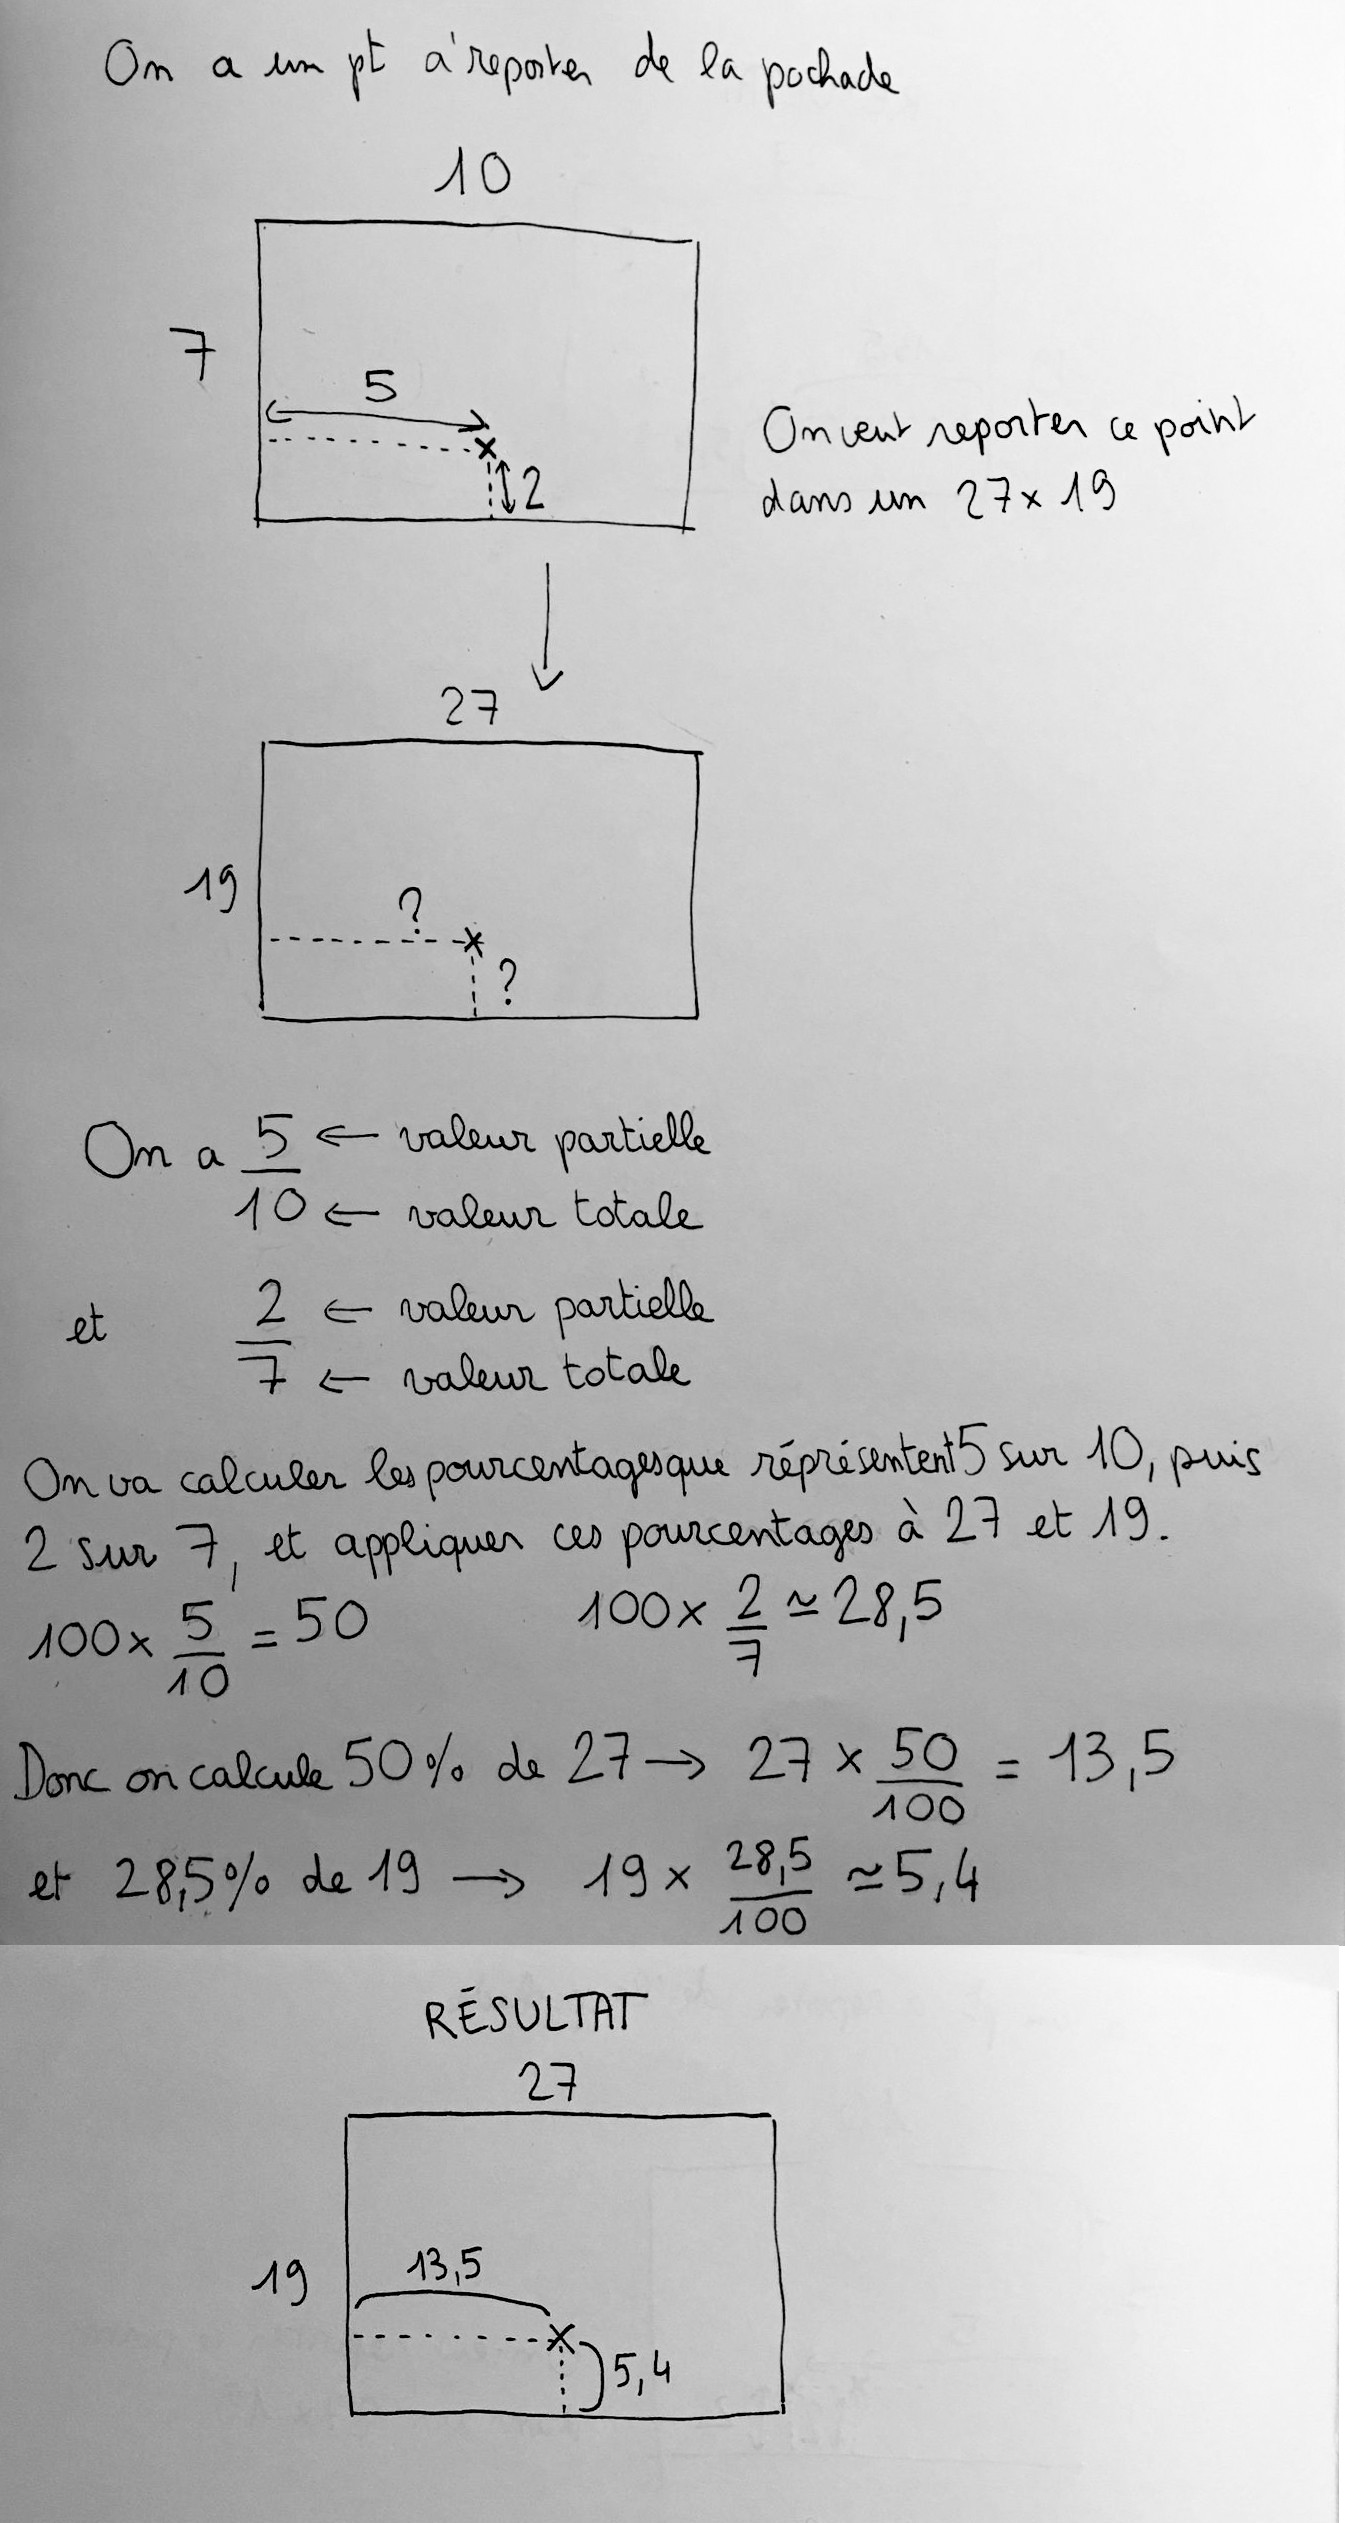 On a un pt à reporter de la pochade
10
7
5
2
On veut reporter ce point
dans un 27 x 19
27
19
?
?
On a 5/10 ← valeur partielle
← valeur totale
et 2/7 ← valeur partielle
← valeur totale
On va calculer les pourcentages que réprésentent 5 sur 10, puis
2 sur 7, et appliquer ces pourcentages à 27 et 19.
100 x 5/10 = 50
100 x 2/7 ≃ 28,5
Donc on calcule 50% de 27 → 27 x 50/100 = 13,5
et 28,5% de 19 → 19 x 28,5/100 ≃ 5,4
RÉSULTAT
27
19
13,5
5,4